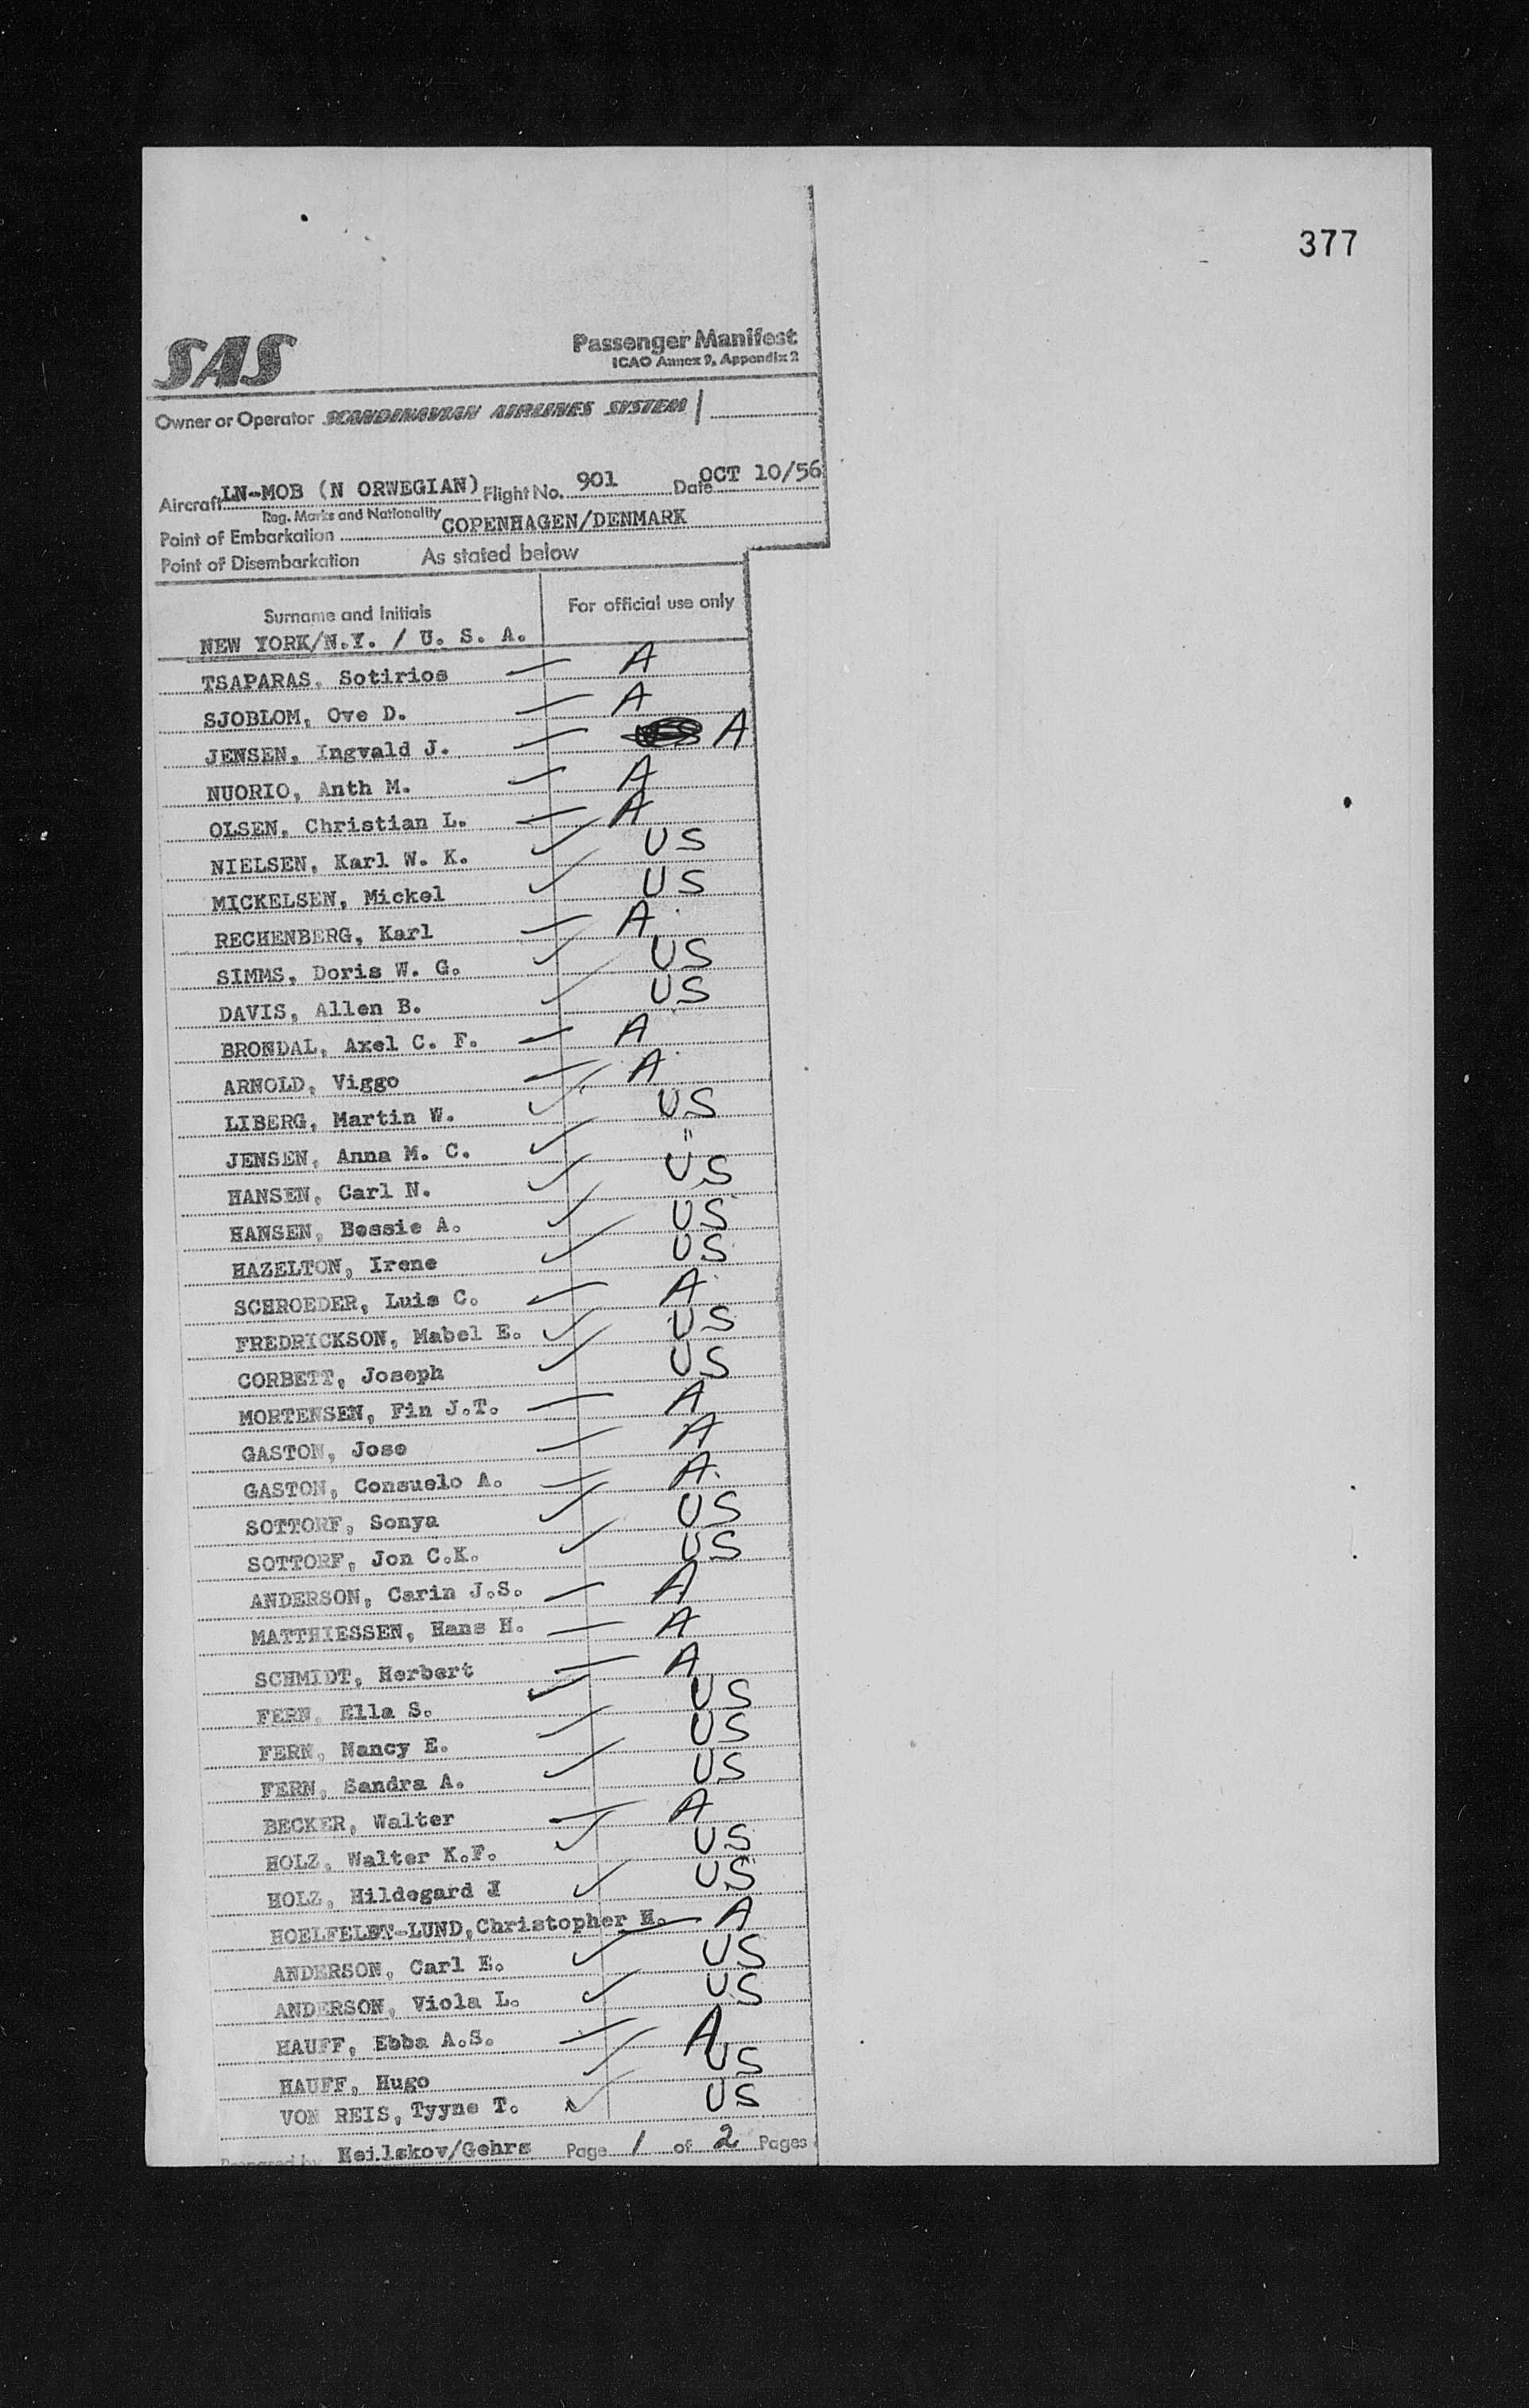 377
SAS
Passenger Manifest
ICAO Annex 9, Appendix 2
Owner or Operator SCANDINAVIAN AIRLINES SYSTEM
Aircraft LN-MOB (N ORWEGIAN) Flight No. 901 Date OCT 10/56
Reg. Marks and Nationality
Point of Embarkation COPENHAGEN/DENMARK
Point of Disembarkation As stated below
Surname and Initials For official use only
NEW YORK/N.Y. / U. S. A.
TSAPARAS, Sotirios A
SJOBLOM, Ove D. A
JENSEN, Ingvald J. A
NUORIO, Anth M. A
OLSEN, Christian L. A
NIELSEN, Karl W. K. US
MICKELSEN, Mickel US
RECHENBERG, Karl A
SIMMS, Doris W. G. US
DAVIS, Allen B. US
BRONDAL, Axel C. F. A
ARNOLD, Viggo A
LIBERG, Martin W. US
JENSEN, Anna M. C. "
HANSEN, Carl N. US
HANSEN, Bessie A. US
HAZELTON, Irene US
SCHROEDER, Luis C. A
FREDRICKSON, Mabel E. US
CORBETT, Joseph US
MORTENSEN, Fin J.T. A
GASTON, Jose A
GASTON, Consuelo A. A
SOTTORF, Sonya US
SOTTORF, Jon C.K. US
ANDERSON, Carin J.S. A
MATTHIESSEN, Hans H. A
SCHMIDT, Herbert A
FERN, Ella S. US
FERN, Nancy E. US
FERN, Sandra A. US
BECKER, Walter A
HOLZ, Walter K.F. US
HOLZ, Hildegard US
Christopher H. A
ANDERSON, Carl E. US
ANDERSON, Viola L. US
HAUFF, Ebba A.S. A
HAUFF, Hugo US
VON REIS, Tyyne T. US
Prepared by Heilskov/Gehrs Page 1 of 2 Pages